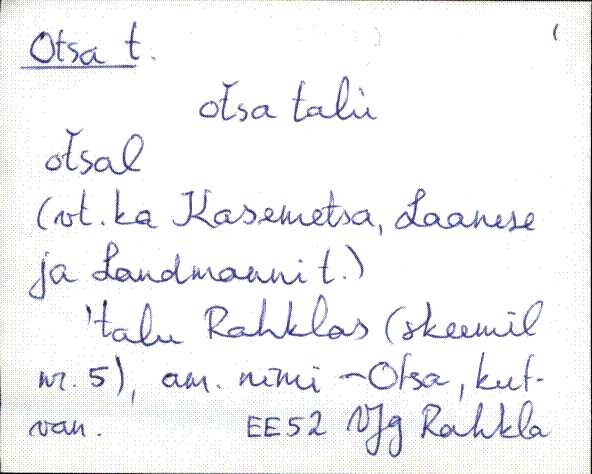 Otsa t.
oťsa talu
oťsal
(vt. ka Kasemetsa, Laanese
ja Landmanni t.)
'talu Rahklas (skeemil
nr. 5), am. nimi ~ Otsa, kut-
van. EE52 VJg Rahkla